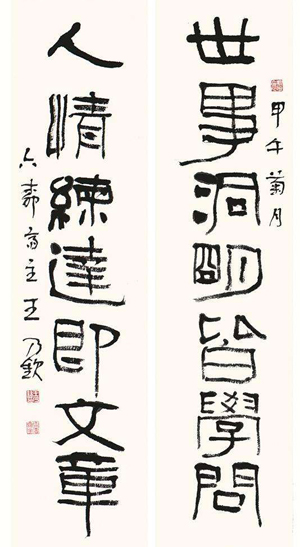 世事洞明皆學問
甲午菊月
人情練達即文章
六壽齋主王乃欽